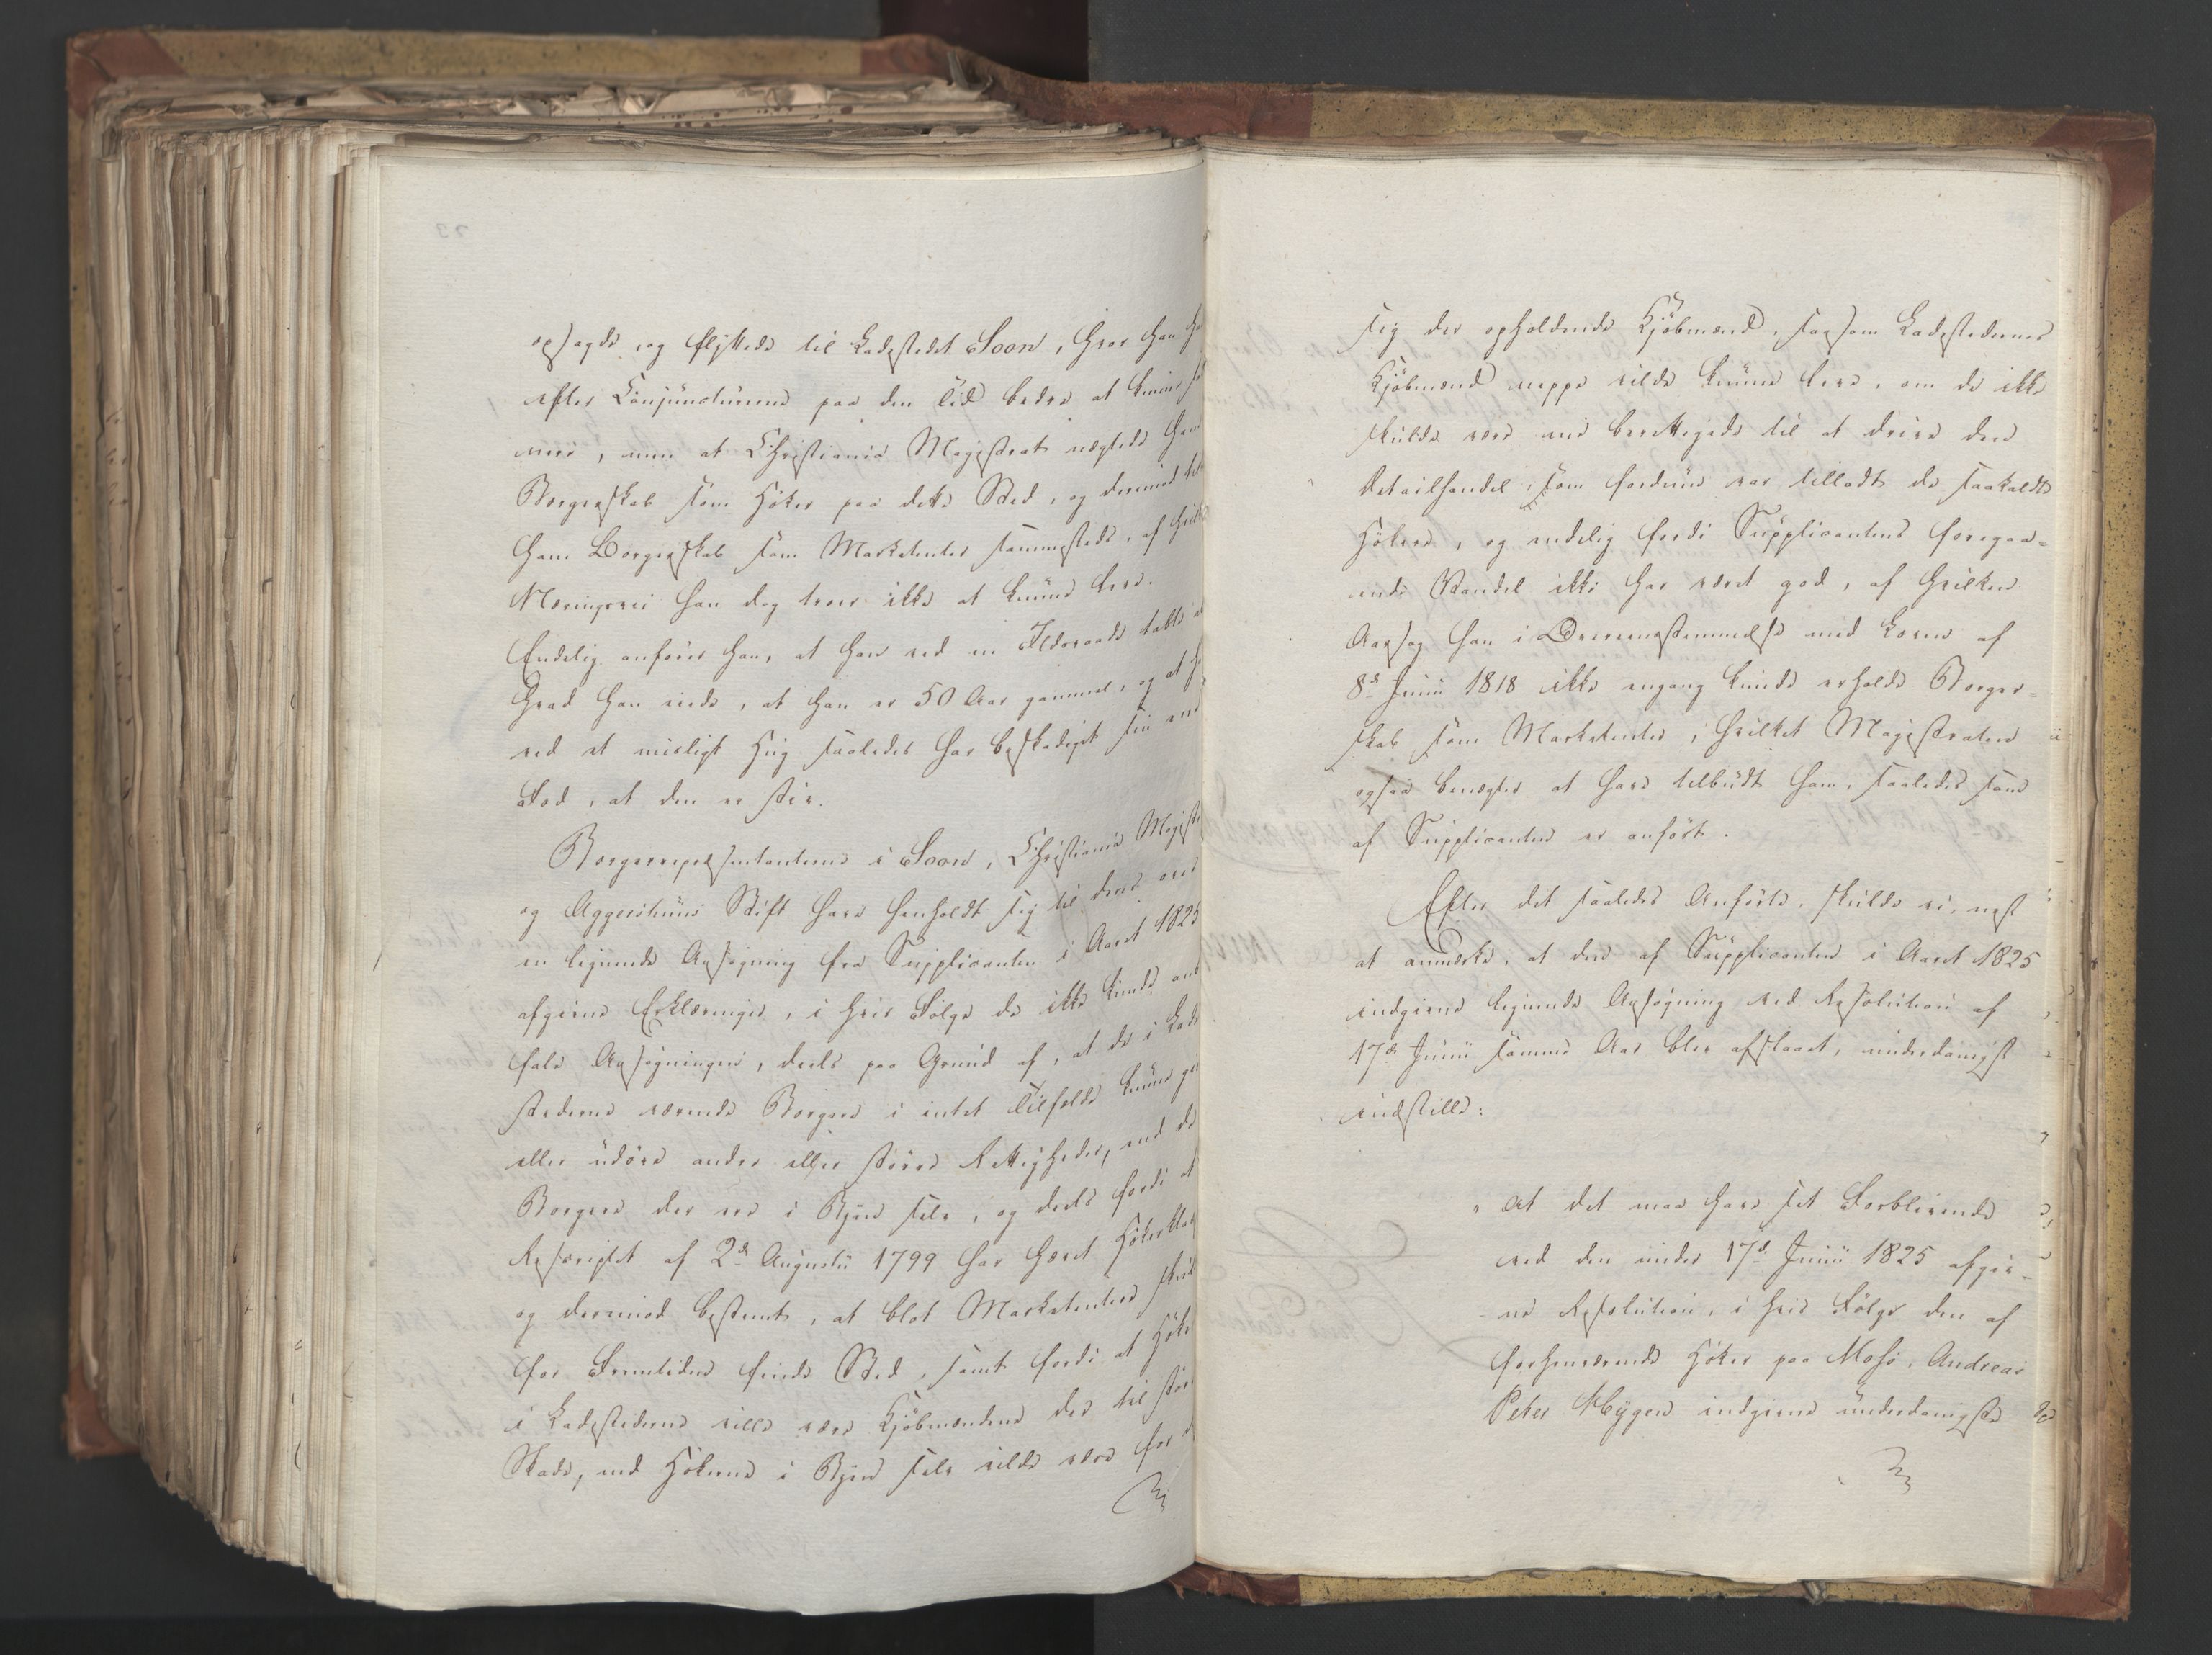 opsagde og flyttede til Ladestedet Soon, hvor han
efter Conjuncturerne paa den Tid bedre at kunne
men at Christiania Magistrat nægtede ham
Borgerskab som Høker paa dette Sted, og derimod
ham Borgerskab som Marketenter sammesteds, af
Næringsvei han dog troer ikke at kunne leve.
Endelig anfører han, at han ved en Ildsvaade tabte
hvad han eiede, at han er 50 Aar gammel, og at
ved et uvisligt Hug saaledes har beskadiget sin
Fod, at den er stiv.
Borgerrepresentanterne i Soon, Christiania
og Aggershuus Stift have henholdt sig til deres over
en lignende Ansøgning fra Supplicanten i Aaret 1825
afgivne Erklæringer, i hvis Følge de ikke kunde
fale Ansøgningen, deels paa Grund af, at de i
stederne værende Borgere i intet Tilfælde kunne
eller udøve andre eller større Rettigheder, end de
Borgere der ere i Byen selv, og deels fordi
Rescriptet af 2d Augustii 1799 har hævet
og derimod bestemt, at blot Marketentere
for Fremtiden finde Sted, samt fordi at
i Ladestederne ville være Kjøbmændene der til
Skade, end Hökerne i Byen selv vilde være for
sig der opholdende Kjøbmænd, saasom Ladestedernes
Kjøbmænd neppe vilde kunne leve, om de ikke
skulde være ene berettigede til at drive den
Detailhandel, som forduum var tilladt de saakaldte
Hökere, og endelig fordi Supplicantens foregaa=
ende Vandel ikke har været god, af hvilken
Aarsag han i Overeensstemmelse med Loven af
8de Junii 1818 ikke engang kunde erholde Borger=
skab som Marketenter, hvilket Magistraten
ogsaa benægter at have tilbudt ham, saaledes som
af Supplicanten er anført.
Efter det saaledes Anførte, skulde vi, næst
at anmærke, at den af Supplicanten i Aaret 1825
indgivne lignende Ansøgning ved Resolution af
17de Junii samme Aar blev afslaaet, underdanigst
indstille:
"At det maa have sit Forblivende
ved den under 17d Junii 1825 afgiv=
ne Resolution, i hvis Følge den af
forhenværende Höker paa Moss, Andreas
Peter Mygen indgivne underdanigste